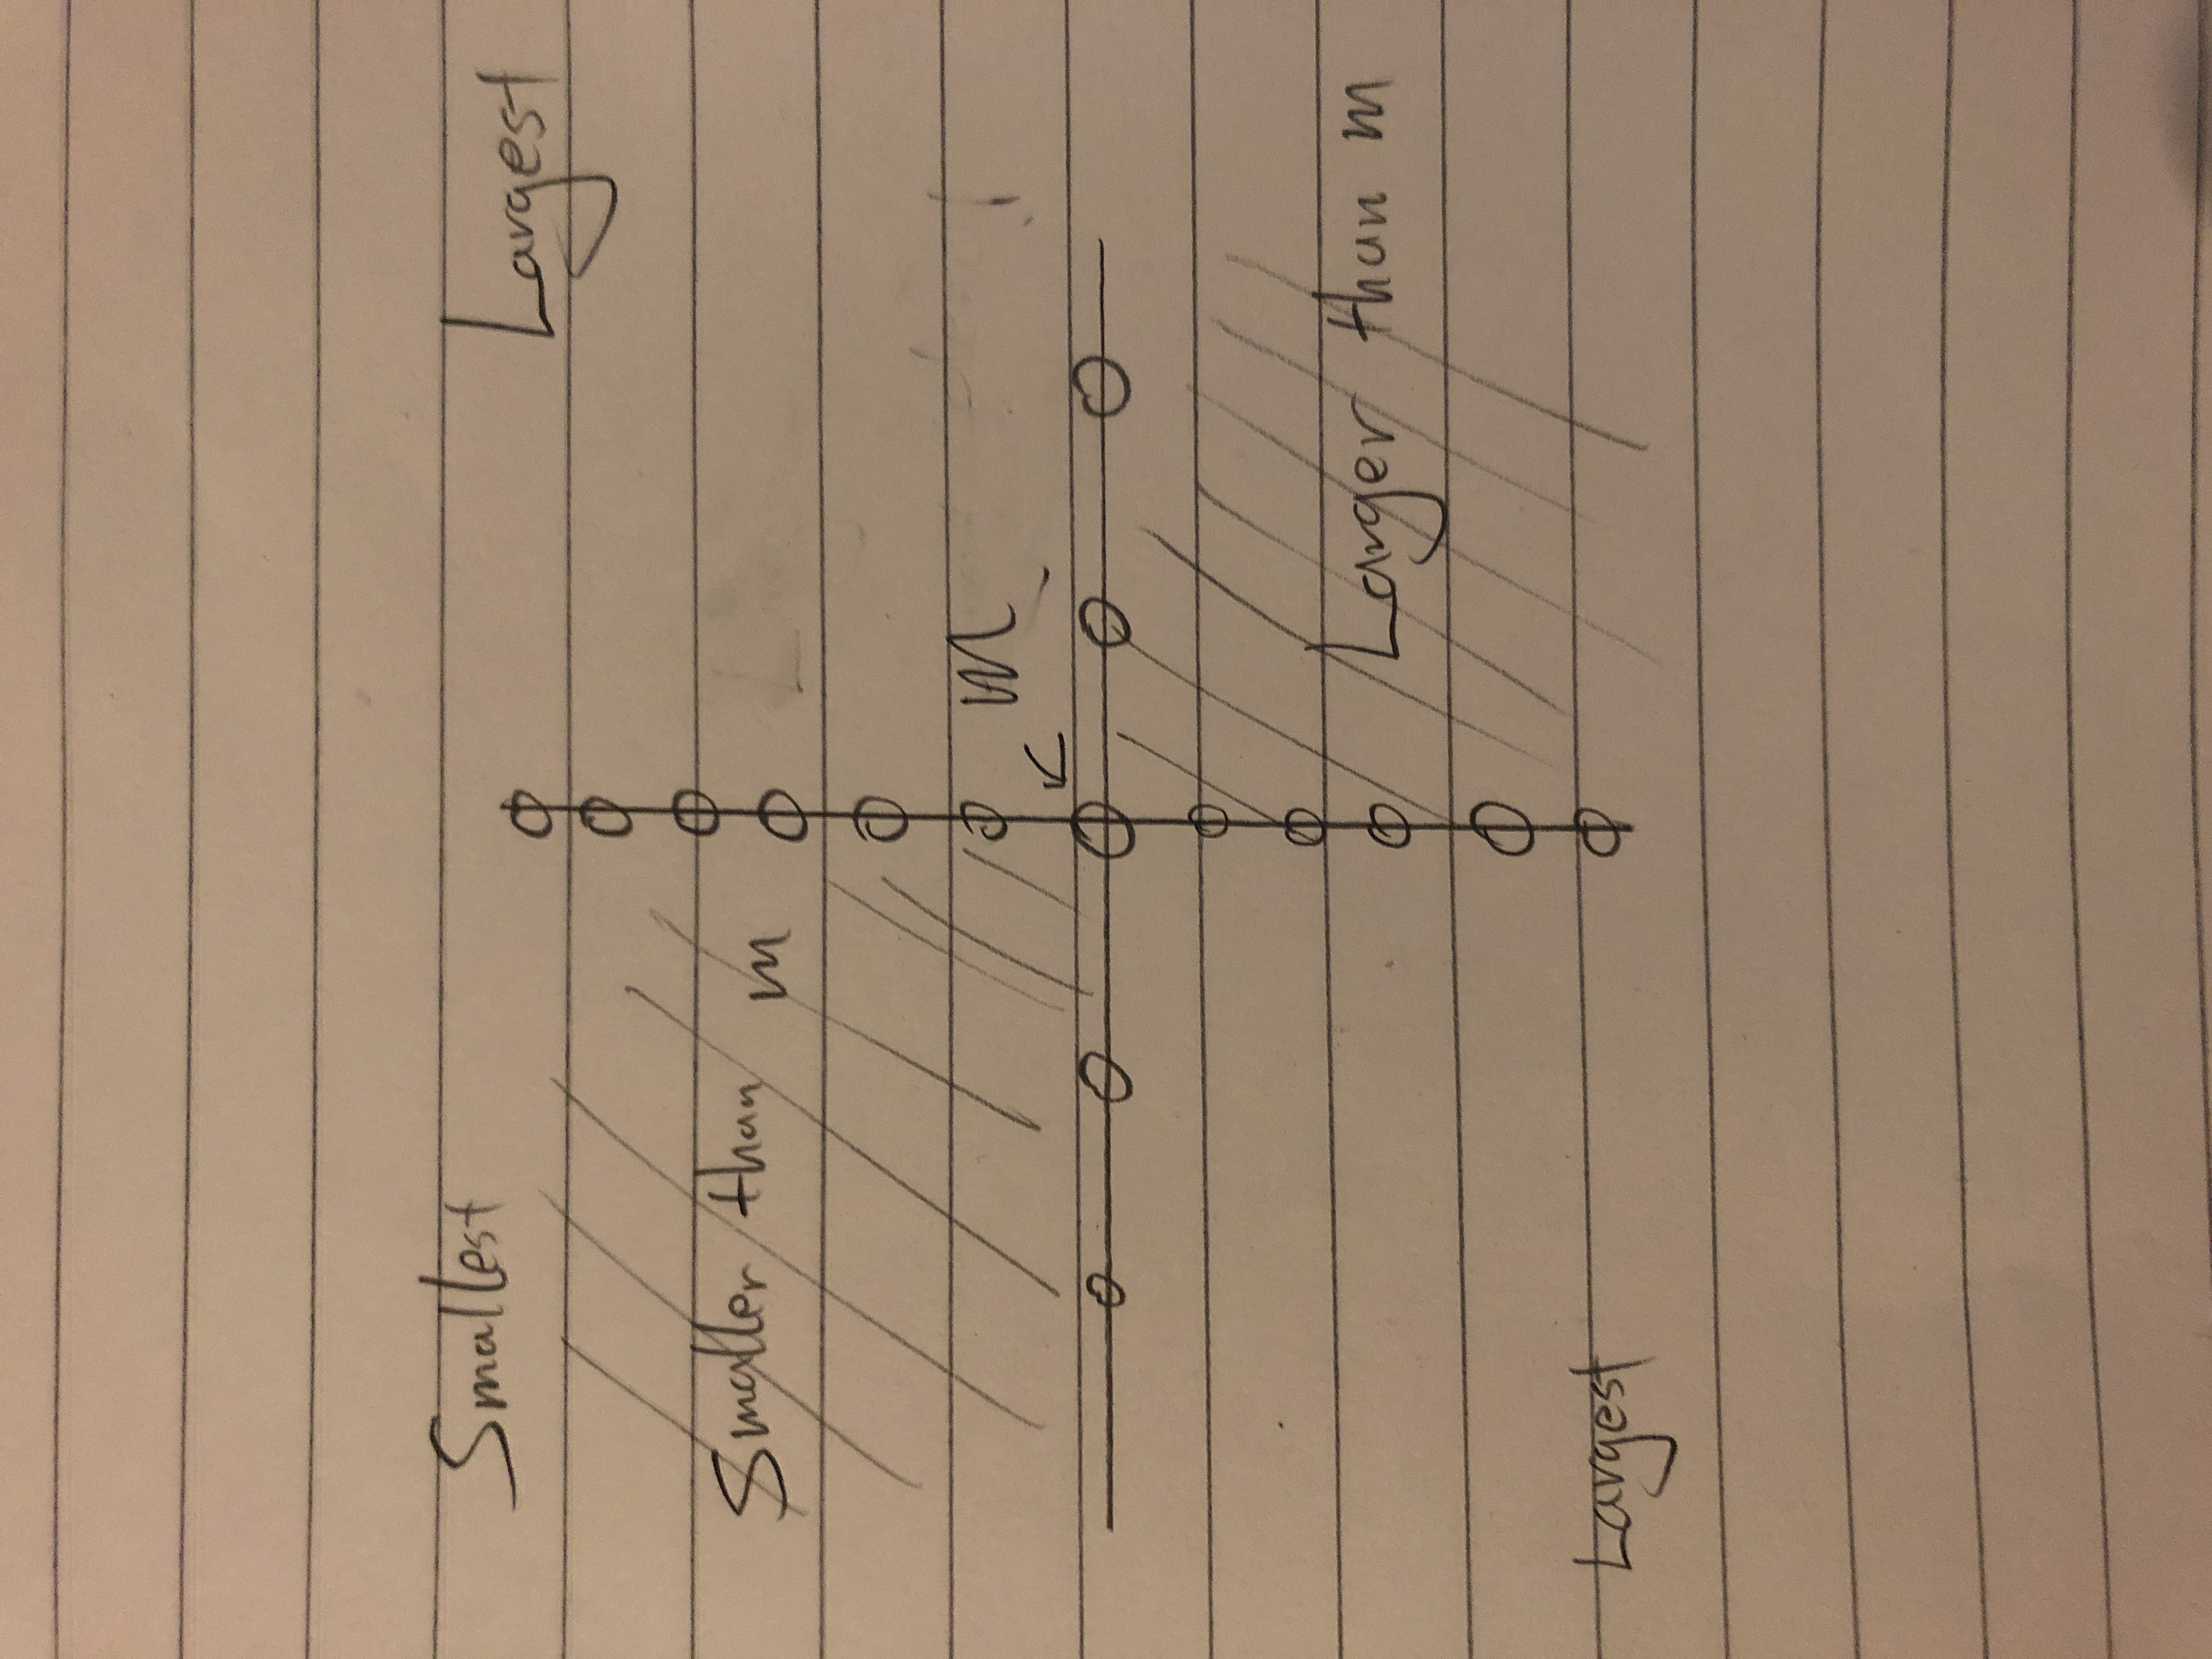 Smallest
Largest
Smaller than m
m
Larger than m
Largest